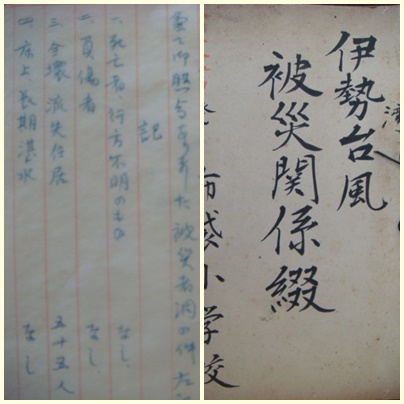 伊勢台風
被災関係綴
布袋小学校
て御照会ありました被災者調の件左
記
一、死亡者行方不明のもの なし
二、負傷者 なし
三、全壊流失住居 五十五人
四、床上長期湛水 なし